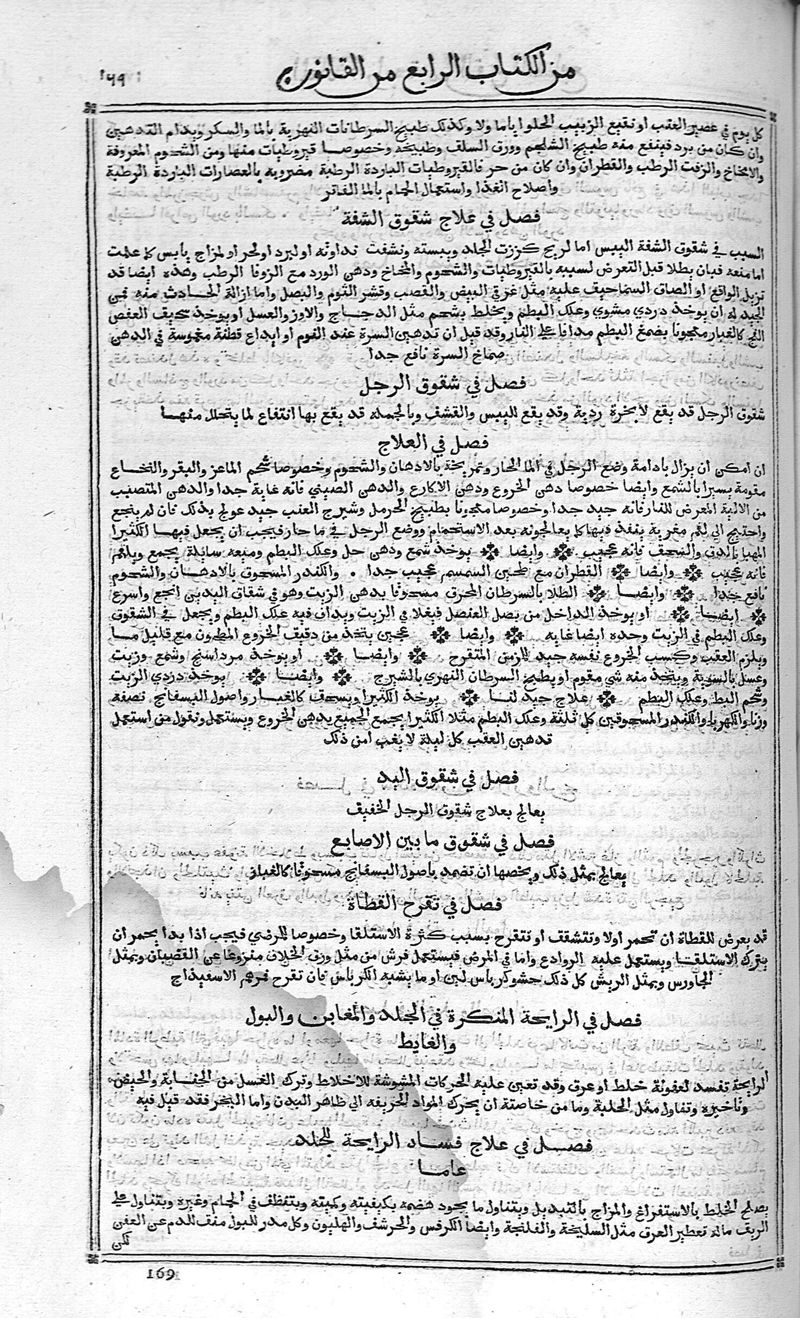 من الكتاب الرابع من القانون
١٦٩
كل يوم في عصير العنب او نقيع الزبيب الحلو اياما ولا وكذلك طبيخ السرطانات النهرية بالما والسكر ويدام التدهين
وان كان من برد فينفع منه طبيخ الشلجم وورق السلف وطبيخه وخصوصا قيروطيات منها ومن الشحوم المعروفة
والامخاخ والزفت الرطب والقطران وان كان من حر فالقيروطيات الباردة الرطبة مضروبه بالعصارات الباردة الرطبة
واصلاح الغذا واستعمال الحمام بالما الفاتر
فصل في علاج شقوق الشفة
السبب في شقوق الشفة اليبس اما لريح كززت الجلد ويبسته ونشفت نداوته او لبرد او لحر او لمزاج يابس كما علمت
اما منعه فبان يطلا قبل التعرض لسببه بالقيروطيات والشحوم والمخاخ ودهن الورد مع الزوفا الرطب وهذه ايضا قد
تزيل الواقع او الصاق السماحيف عليه مثل غرقي البيض والقصب وقشر الثوم والبصل واما ازالة الحادث منه فمن
الجيد له ان يوخذ دردي مشوي وعلك البطم ويخلط بشحم مثل الدجاج والاوز والعسل او يوخذ سحيق العفص
الفج كالغبار معجونا بصمغ البطم مدافا على النار وقد قيل ان تدهين السرة عند النوم او ايداع قطنة مغموسة في الدهن
صماخ السرة نافع جدا
فصل في شقوق الرجل
شقوق الرجل قد يقع لابخرة ردية وقد يقع لليبس والقشف وبالجمله قد يقع بها انتفاع لما يتحلل منها
فصل في العلاج
ان امكن ان يزال بادامة وضع الرجل في الما الحار وتمريخه بالادهان والشحوم وخصوصا شحم الماعز والبقر والنخاع
مقومة يسيرا بالشمع وايضا خصوصا دهن الخروع ودهن الاكارع والدهن الصيني فانه غاية جدا والدهن المتصبب
من الالية المعرض للنار فانه جيد جدا وخصوصا معجونا بطبيخ الحرمل وشيرج العنب جيد عولج بذلك فان لم ينجع
واحتيج الي لحم مغرية ينفذ فيها كما يعالجونه بعد الاستحمام ووضع الرجل في ما حار فيجب ان يجعل فيها الكثيرا
المهيا بالدق والسحف فانه عجيب وايضا يوخذ شمع ودهن حل وعلك البطم وميعه سايلة يجمع ويلقم
فانه عجيب وايضا القطران مع طحين السمسم عجيب جدا والكندر المسحوق بالادهان والشحوم
نافع جدا وايضا الطلا بالسرطان المحرق مسحوقا بدهن الزيت وهو في شقاق اليدين انجع واسرع
ايضا او يوخذ الداخل من بصل العنصل فيغلا في الزيت ويداف فيه علك البطم ويجعل في الشقوق
وعلك البطم في الزيت وحده ايضا غايه وايضا عجين يتخذ من دقيق الخروع المطحون مع قليل ما
ويلزم العقب وكسب الخروع نفسه جيد للزمن المتقرح وايضا او يوخذ مرداسنج وشمع وزيت
وعسل بالسوية ويتخذ منه شي مقوم او يطبخ السرطان النهري بالشيرج وايضا يوخذ دردي الزيت
وشحم البط وعلك البطم علاج جيد لنا يوخذ الكثيرا ويسحف كالغبار واصول البسفانج نصفه
وزنا والكهربا والكندر المسحوقين كل ثلثه وعلك البطم مثلا الكثيرا يجمع الجميع بدهن الخروع ويستعمل ونقول من استعمل
تدهين العقب كل ليلة لا يغب امن ذلك
فصل في شقوق اليد
يعالج بعلاج شقوق الرجل الخفيف
فصل في شقوق ما بين الاصابع
يعالج بمثل ذلك ويخصها ان تضمد باصول البسفانج مسحوقا كالغبار
فصل في تقرح القطاة
قد يعرض للقطاة ان تحمر اولا وتتشقف او تتقرح بسبب كثرة الاستلقا وخصوصا للمرضي فيجب اذا بدا يحمر ان
يترك الاستلقا ويستعمل عليه الروادع واما في المرض فيستعمل فرش من مثل ورق الخلاف منزوعا عن القضبان وبمثل
الجاورس وبمثل الريش كل ذلك حشو كرباس لين او ما يشبه الكرباس فان تقرح فرهم الاسفيذاج
فصل في الرايحة المنكرة في الجلد والمغابن والبول
والغايط
الرايحة تفسد لعفونة خلط او عرق وقد تعين عليه الحركات المشوشة للاخلاط وترك الغسل من الجنابة والحيض
وتاخيره وتناول مثل الحلبة وما من خاصته ان يحرك المواد الحريفه الي ظاهر البدن واما البخر فقد قيل فيه
فصل في علاج فساد الرايحة للجلد
عاما
يصلح الخلط بالاستفراغ والمزاج بالتبديل ويتناول ما يجود هضمه بكيفيته وكميته ويتنظف في الحمام وغيره ويتناول على
الريق ماله تعطير العرق مثل السليخة والفلنجة وايضا الكرفس والحرشف والهليون وكل مدر للبول منف للدم عن العفن
لكن
169